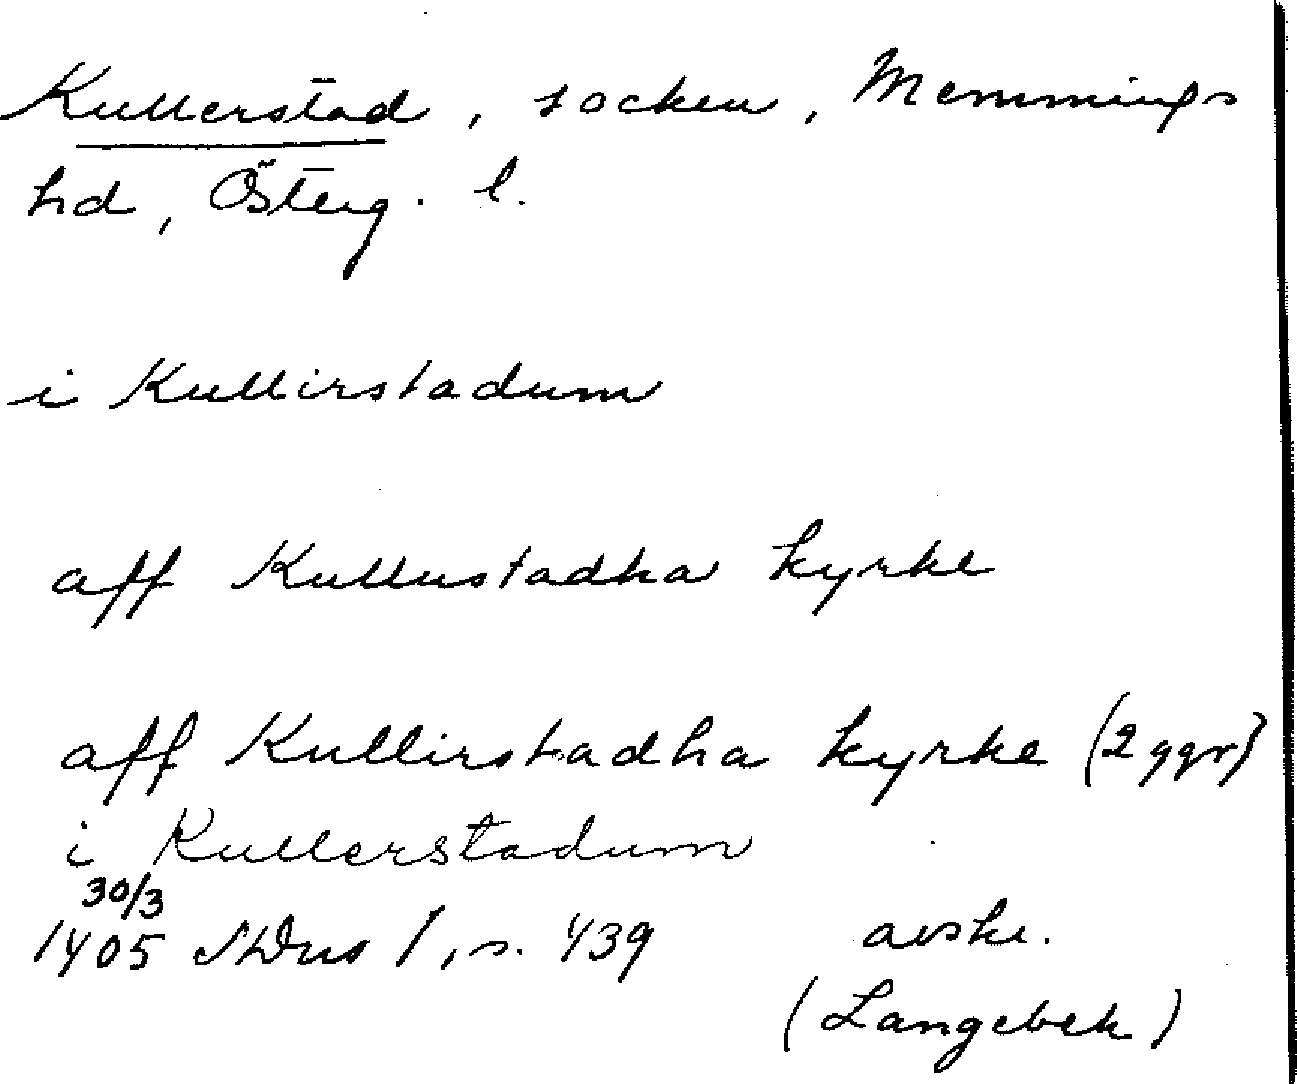 Kullerstad, socken, Memmings
hd, Österg. l.
i Kullirstadum
aff Kullustadha kyrke
aff Kullirstadha kyrke (2 ggr)
i Kullerstadum
30/3
1405 SDns 1, s. 439 avskr.
(Langebek)